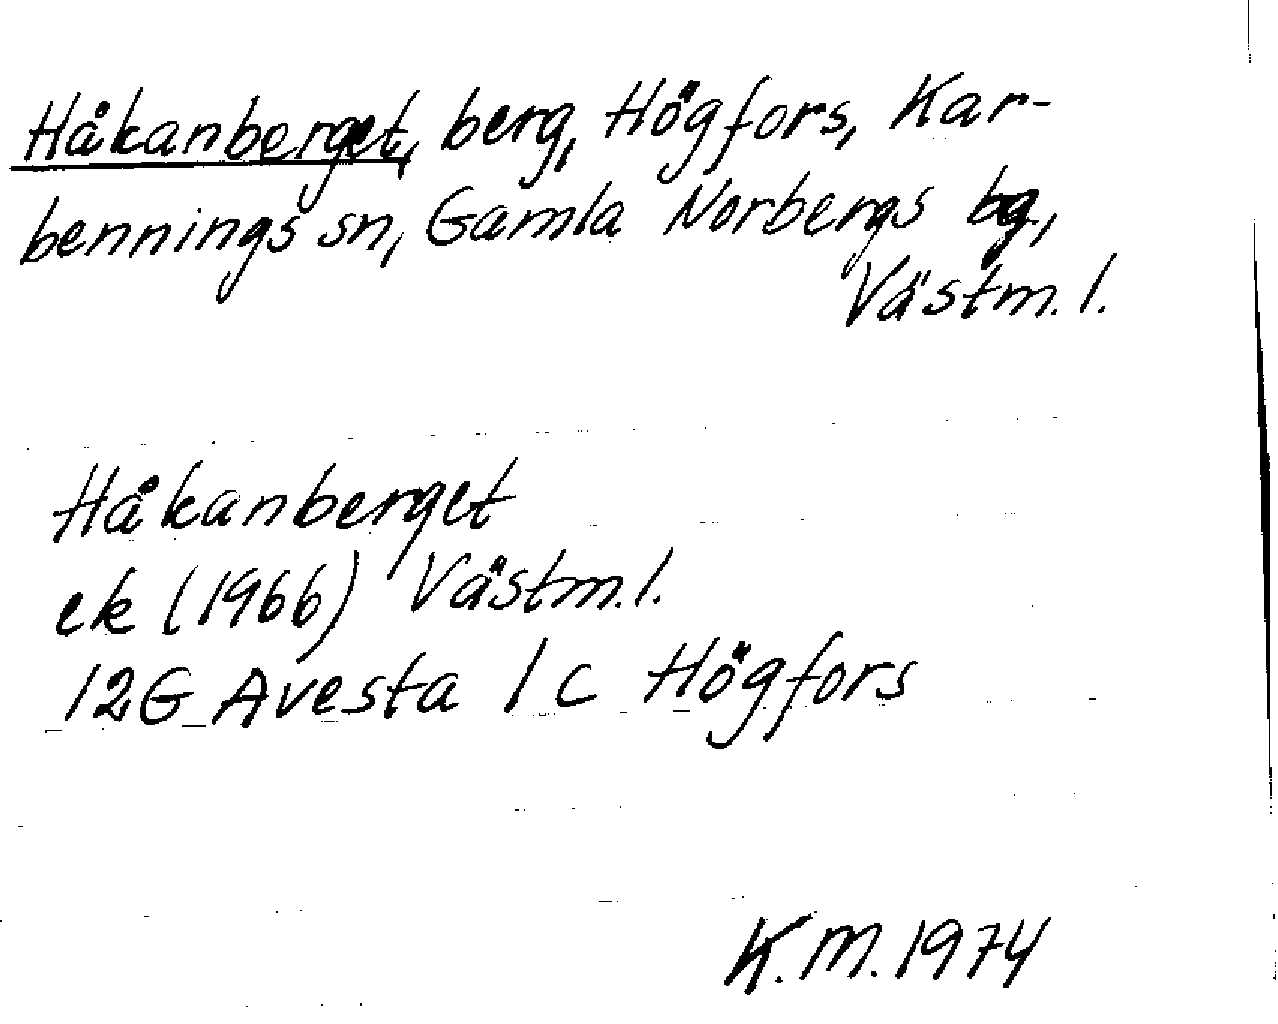 Håkanberget, berg, Högfors, Kar-
bennings sn, Gamla Norbergs bg,
Västm. l.
Håkanberget
ek (1966) Västm. l.
12G Avesta 1 c Högfors
K.M. 1974